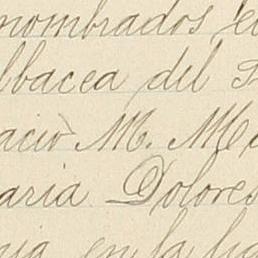 nombrados e
lbacea del
acio M. M
aria Dolores
en la